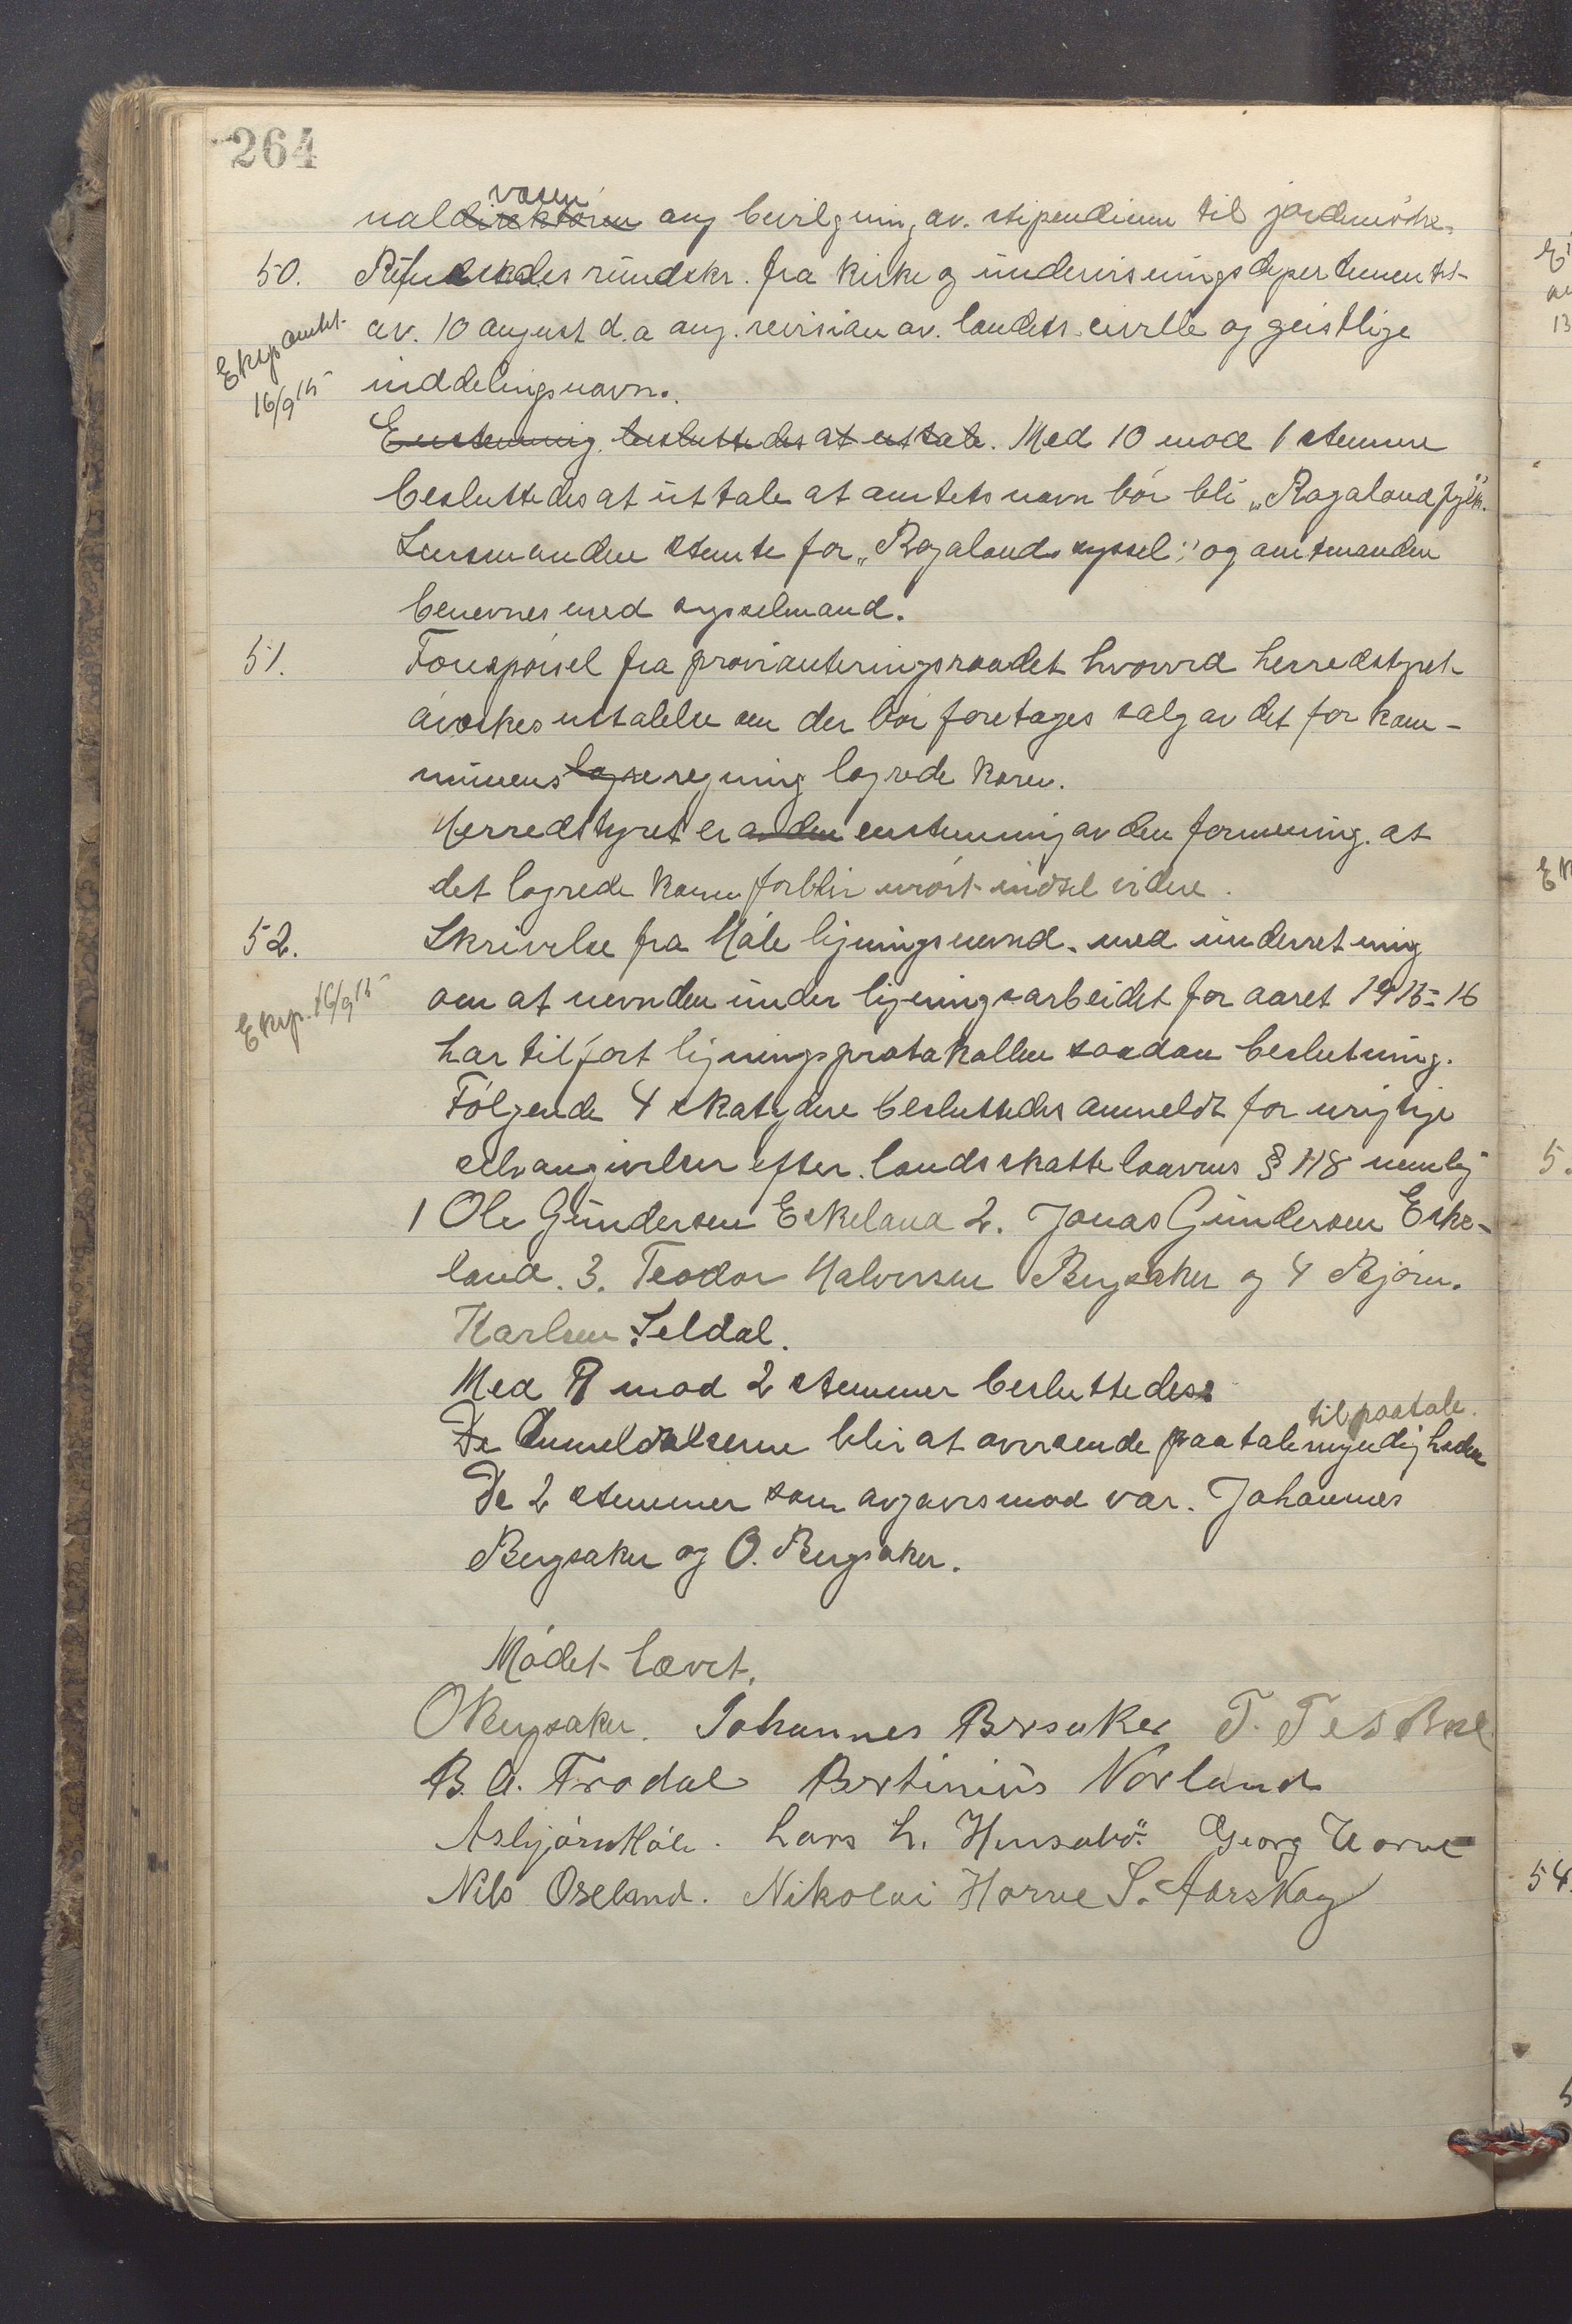 264
væsen
naldirektøren ang bevilgning av. stipendium til jordmødre.
50. Refereredes rundskr. fra kirke og undervisningsdepertementet
Eksp amtet
av. 10 august d.a ang. revision av. landets civile og geistlige
16/9 15
inddelingsnavn.
Enstemmig besluttedes at uttale. Med 10 mod 1 stemme
besluttedes at uttale at amtets navn bør bli „Rogaland fylke"
Lensmanden stemte for „Rogalands syssel" og amtmanden
benevnes med sysselmand.
51. Forespørsel fra provianteringsraadet hvorvid herredstyret
ønskes uttalelse om der bør foretages salg av det for kom-
munens regning lagrede korn.
Herredstyret er av den enstemmig av den formening. at
det lagrede korn forblir urørt indtil videre.
52. Skrivelse fra Høle ligningsnevnd. med underretning
Eksp. 16/9 15
om at nevnden under ligningsarbeidet for aaret 1915-16
har tilført ligningsprotokollen saadan beslutning.
Følgende 4 skatydere besluttedes anmeldt for urigtige
selvangivelser efter landsskatteloovens § 118 nemlig
1 Ole Gundersen Eskeland 2. Jonas Gundersen Eske-
land. 3. Teodor Halvorsen Bergsaker og 4 Bjørn.
Karlsen Seldal.
Med 9 mod 2 stemmer besluttedes:
til paatale.
De Anmeldelserne blir at oversende paatalemyndigheden
De 2 stemmer som avgaves mod var. Johannes
Bergsaker og O. Bergsaker.
Mødet hævet.
O Bergsaker. Johannes Brsaker T. Tesdal
B. A. Frodal Bertinius Norland
Asbjørn Høle. Lars L. Hensabø. Georg Horve
Nils Oseland. Nikolai Horve S. Aarskog
5.
54.